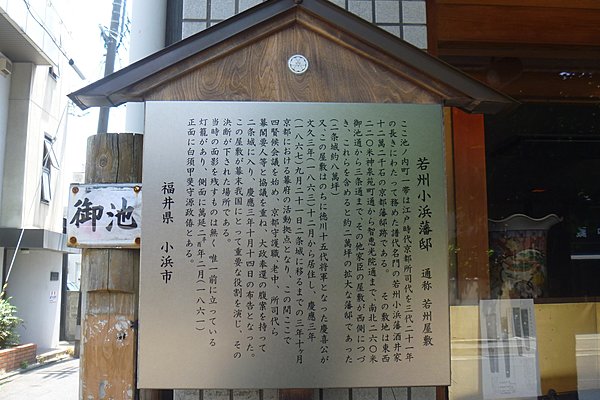 若州小浜藩邸　通称 若州屋敷
ここ池ノ内町一帯は江戸時代京都所司代を三代三十一年
の長きにわたって務めた譜代名門の若州小浜藩酒井家
十二万三千石の京都藩邸跡である。　その敷地は東西
二二〇米神泉苑町通から智恵光院通まで、南北二六〇米
御池通から三条通まで、その他家臣の屋敷が西側につづ
き、これらを含めると約二萬坪の拡大な藩邸であった
（二条城約八萬坪）。
又、この屋敷はのちに徳川十五代将軍となった慶喜公が
文久三年（一八六三）十二月から居住し、慶應三年
（一八六七）九月二十一日二条城に移るまでの三年十ヶ月
京都における幕府の活動拠点となり、この間ここで
四賢候会議を始め、京都守護職、老中、所司代ら
幕閣要人等と協議を重ね、大政奉還の腹案を持って
二条城に入り、慶應三年十月十四日の布告となった。
この屋敷が幕末我国にとって重要な役割を演じ、その
決断が下された場所である。
当時の面影を残すものは無く、唯一前に立っている
灯籠があり、側面に萬延二辛酉年二月（一八六一）
正面に白須甲斐守源政偆とある。
福井県　小浜市
御池